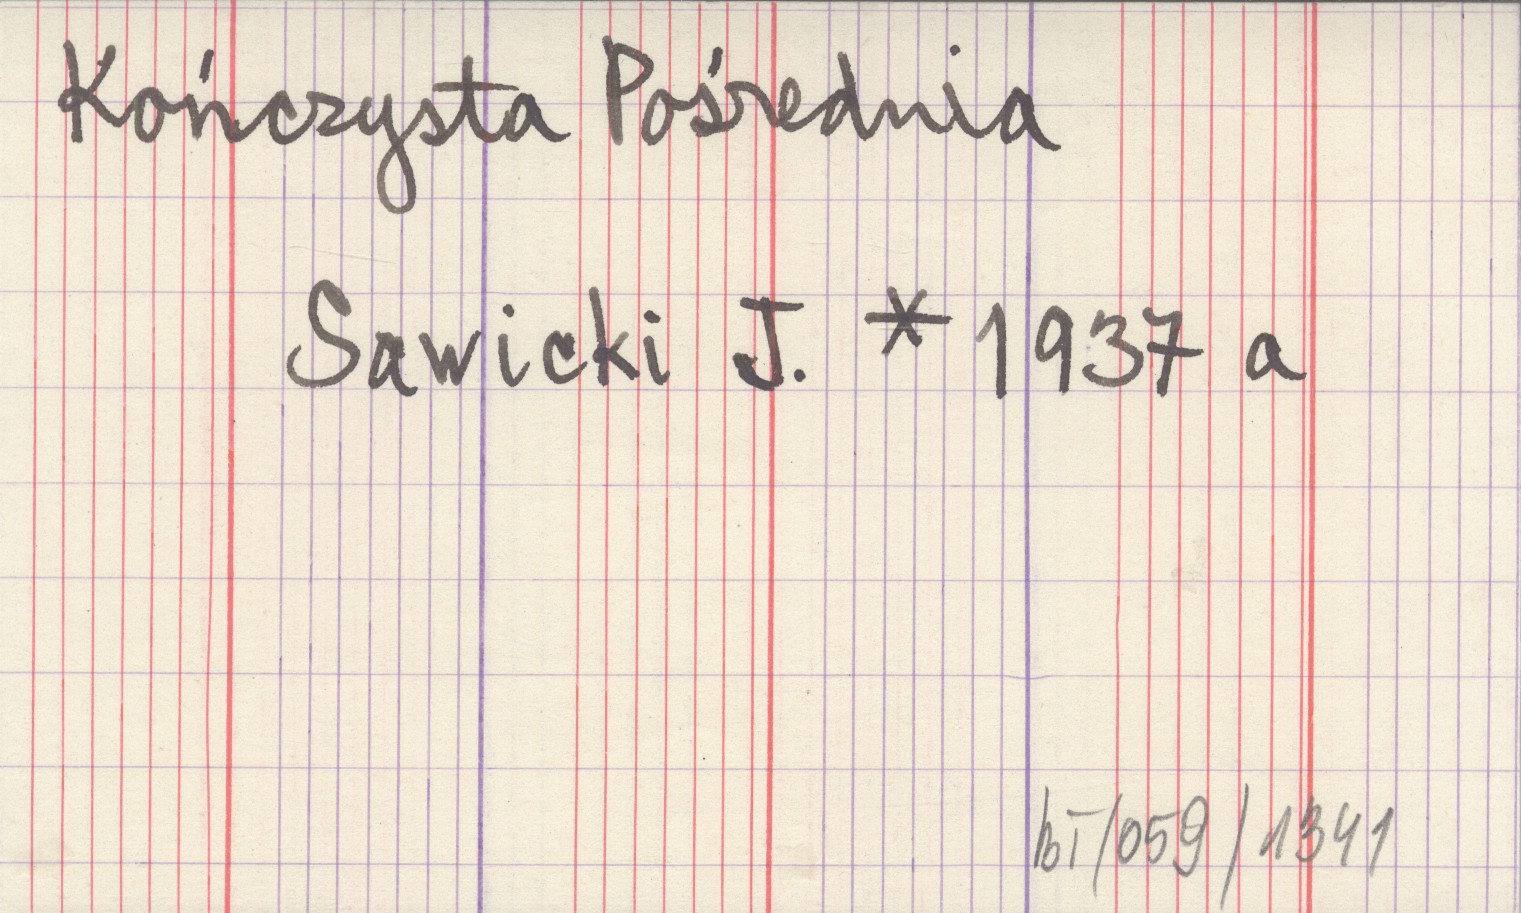 Kończysta Pośrednia
Sawicki J. * 1937 a
bT/059/1341